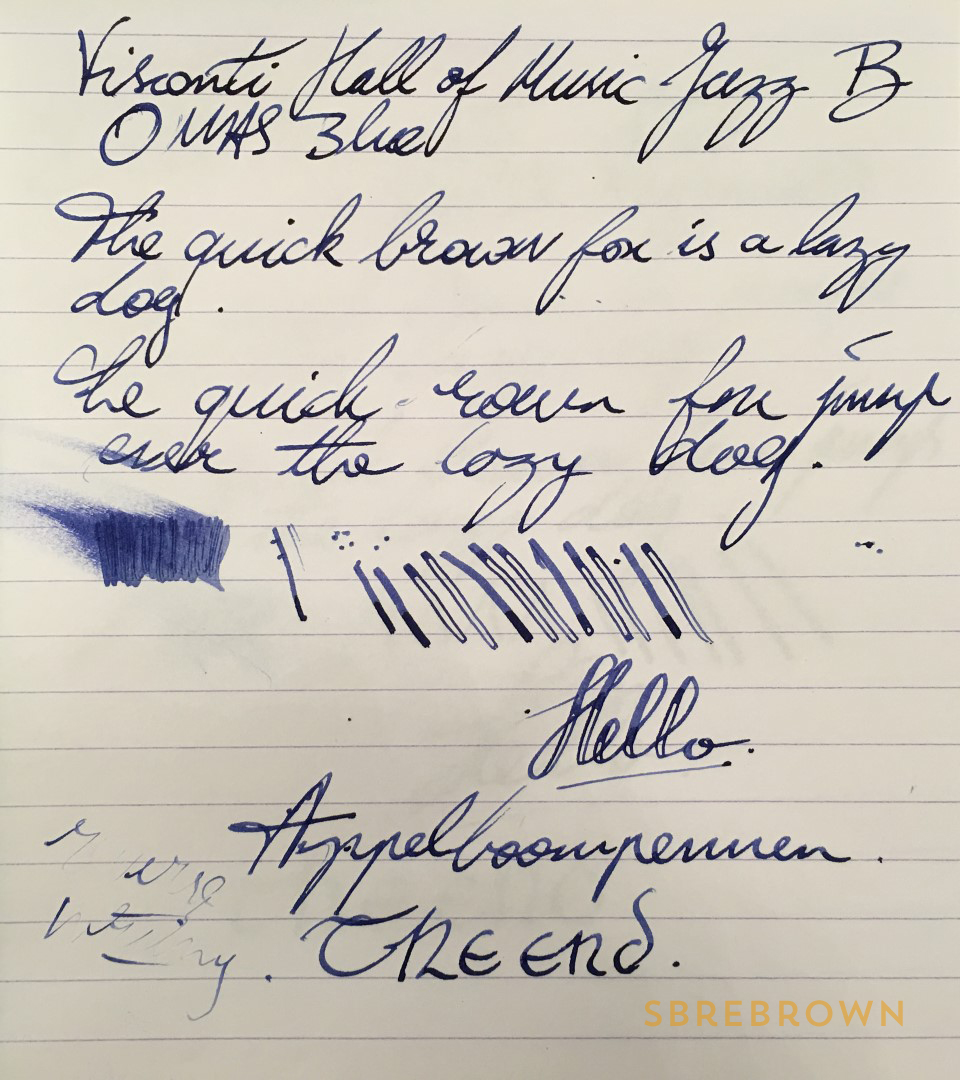 Visconti Hall of Music Jazz B
OMAS Blue
The quick brown fox is a lazy
dog.
The quick rown fox jump
over the lazy dog.
Hello.
Appelboompennen.
Reverse
writing.
THE END.
SBREBROWN